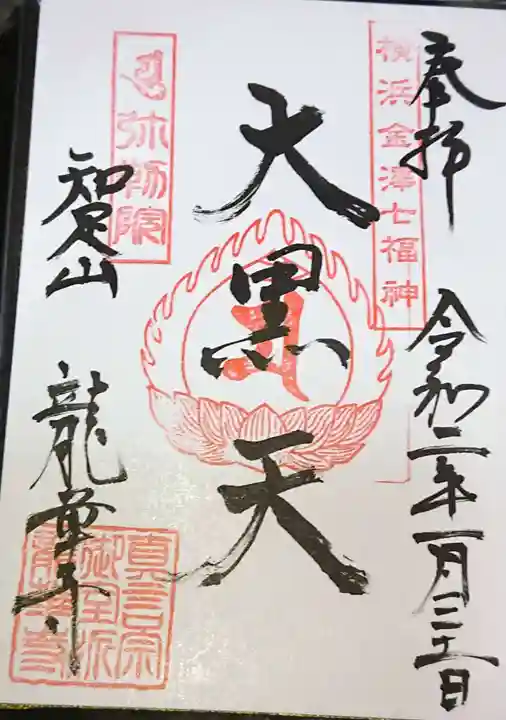 奉拝
横浜金澤七福神
令和二年一月三十一日
大黒天
弥勒院
知足山
龍華寺
真言宗
御室派
龍華寺